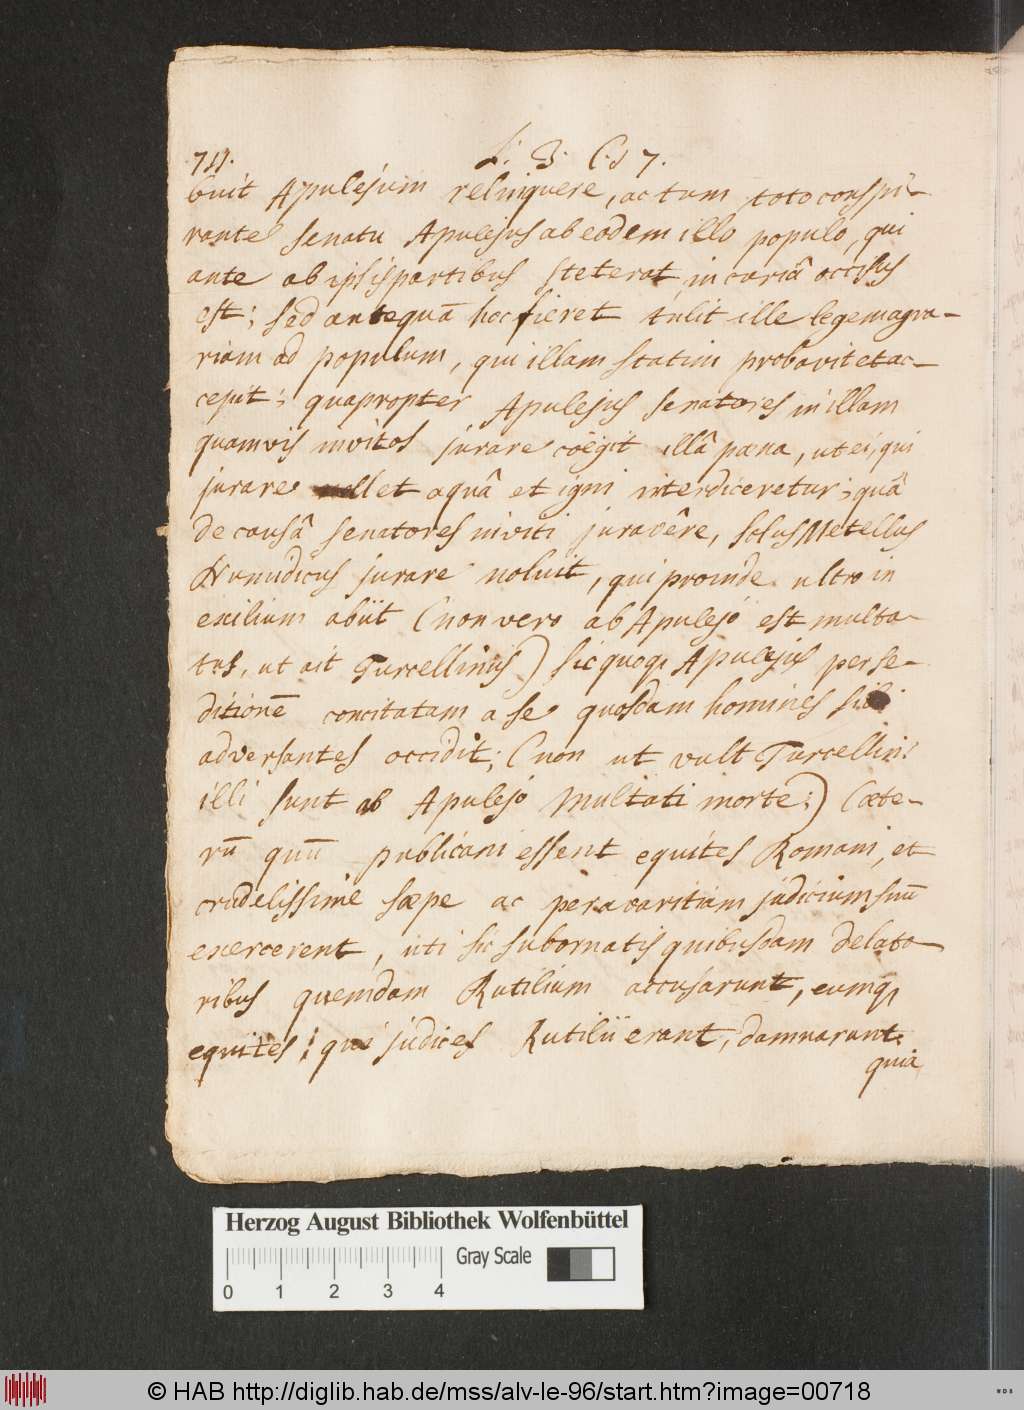 711. L. 3. C. 17.
buit Apulejum relinquere, ac tum toto conspi-
rante senatu Apulejus ab eodem illo populo, qui
ante ab ipsis partibus steterat, in curiâ occisus
est; sed antequā hoc fieret tulit ille legem agra-
riam ad populum, qui illam statim probavit et ac-
cepit; quapropter Apulejus senatores in illam
quamvis invitos jurare coëgit illâ pæna, ut ei, qui
jurare nollet aquâ et igni interdiceretur; quâ
de causâ senatores inviti juravêre, solus Metellus
Numidicus jurare noluit, qui proinde ultro in
exilium abiit (non vero ab Apulejo est multa-
tus, ut ait Turcellinus) sic quoq; Apulejus per se-
ditionē concitatam a se quosdam homines sibi
adversantes occidit; (non ut vult Turcellin:
illi sunt ab Apulejo multati morte;) Cæte-
rū quū publicani essent equites Romani, et
crudelissime sæpe ac per avaritiam judicium suū
exercerent, uti sic subornatis quibusdam delato-
ribus quemdam Rutilium accusarunt, eumq;
equites, qui judices Rutilii erant, damnarunt
quia
Herzog August Bibliothek Wolfenbüttel
Gray Scale
0 1 2 3 4
© HAB http://diglib.hab.de/mss/alv-le-96/start.htm?image=00718